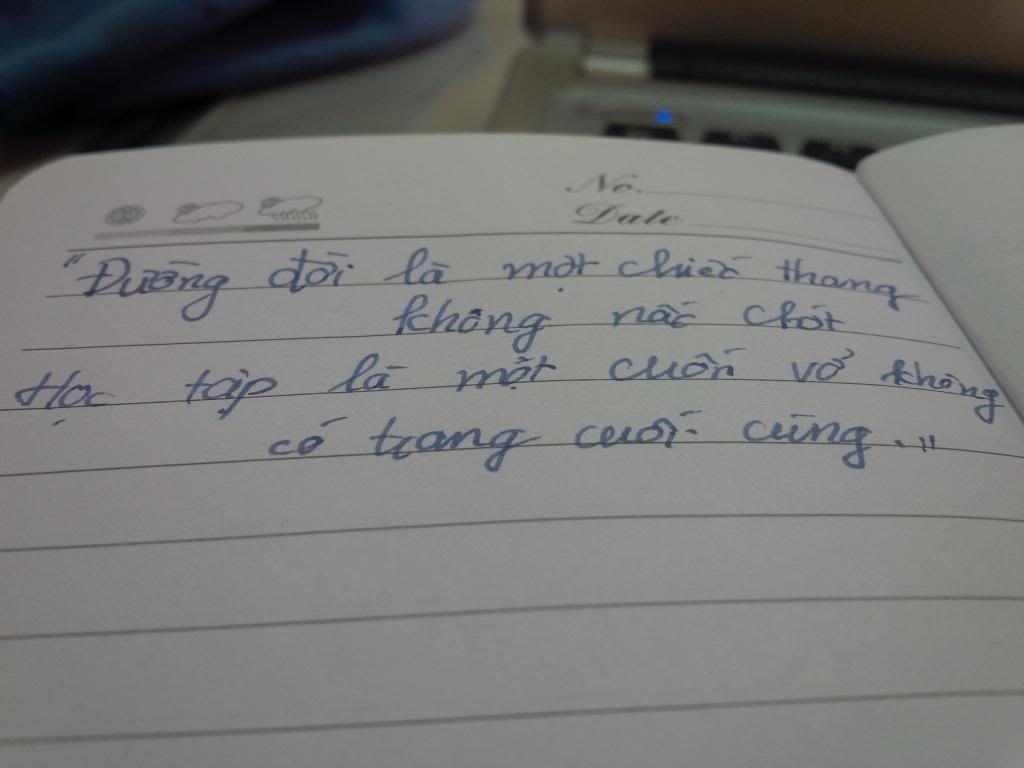 No.
Date
"Đường đời là một chiếc thang
không nấc chót
Học tập là một cuốn vở không
có trang cuối cùng."